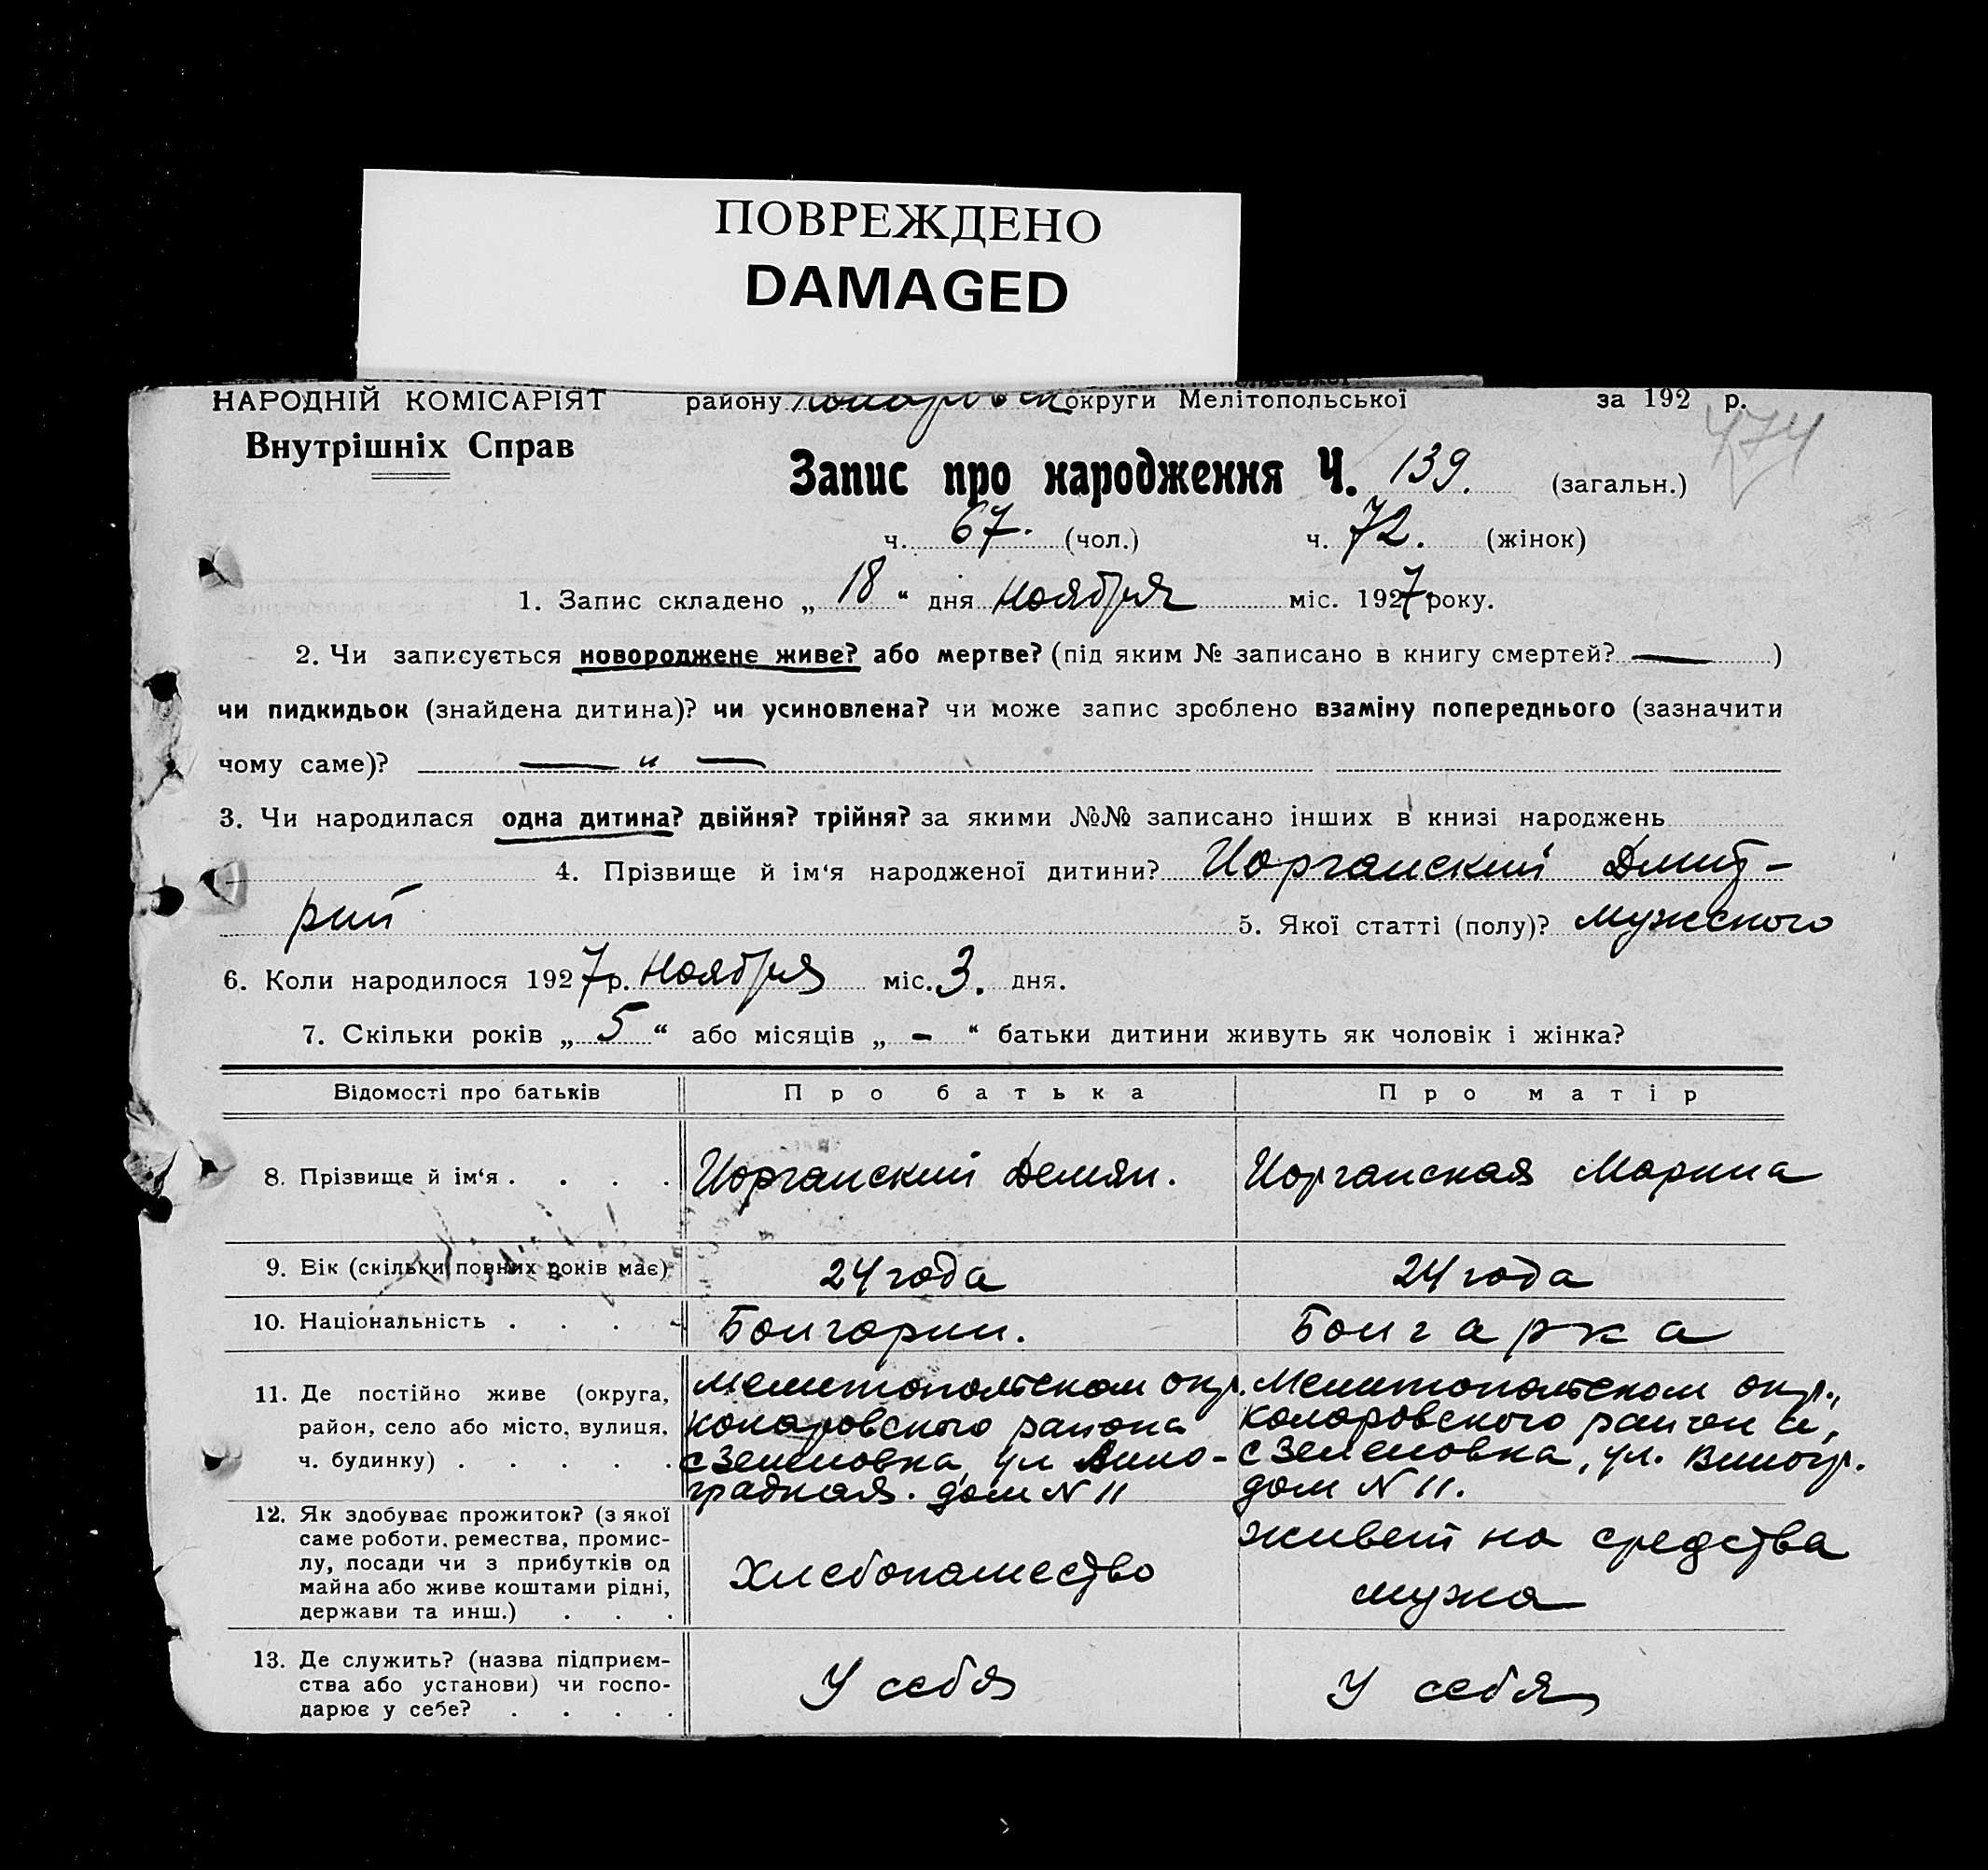 ПОВРЕЖДЕНО
DAMAGED
НАРОДНІЙ КОМІСАРІЯТ району Коларовск округи Мелітопольської за 192 р.
Внутрішніх Справ
474
Запис про народження Ч. 139. (загальн.)
ч. 67. (чол.) ч. 72. (жінок)
1. Запис складено „ 18 “ дня Ноября міс. 1927 року.
2. Чи записується новороджене живе? або мертве? (під яким № записано в книгу смертей? — )
чи пидкидьок (знайдена дитина)? чи усиновлена? чи може запис зроблено взаміну попереднього (зазначити
чому саме)? — „ —
3. Чи народилася одна дитина? двійня? трійня? за якими №№ записано інших в книзі народжень
4. Прізвище й ім‘я народженої дитини? Иорганский Дмит-
рий 5. Якої статті (полу)? мужского
6. Коли народилося 1927 р. Ноября міс. 3. дня.
7. Скільки років „ 5 “ або місяців „ - “ батьки дитини живуть як чоловік і жінка?
Відомості про батьків Про батька Про матір
8. Прізвище й ім‘я . . . . Иорганский Демян. Иорганская Марина
9. Вік (скільки повних років має) 24 года 24 года
10. Національність . . . . Болгарин. Болгарка
11. Де постійно живе (округа, Мелитопольском окр. Мелитопольском окр.,
район, село або місто, вулиця, Коларовского района Коларовского района,
ч. будинку) . . . . . с Зеленовка, ул Вино- с Зеленовка, ул. Виногр.
градная. дом N 11 дом N 11.
12. Як здобуває прожиток? (з якої живет на средства
саме роботи, ремества, промис-
лу, посади чи з прибутків од Хлебопашество
майна або живе коштами рідні, мужа
держави та инш.) . . .
13. Де служить? (назва підприєм-
ства або установи) чи госпо- У себя У себя
дарює у себе? . . . .